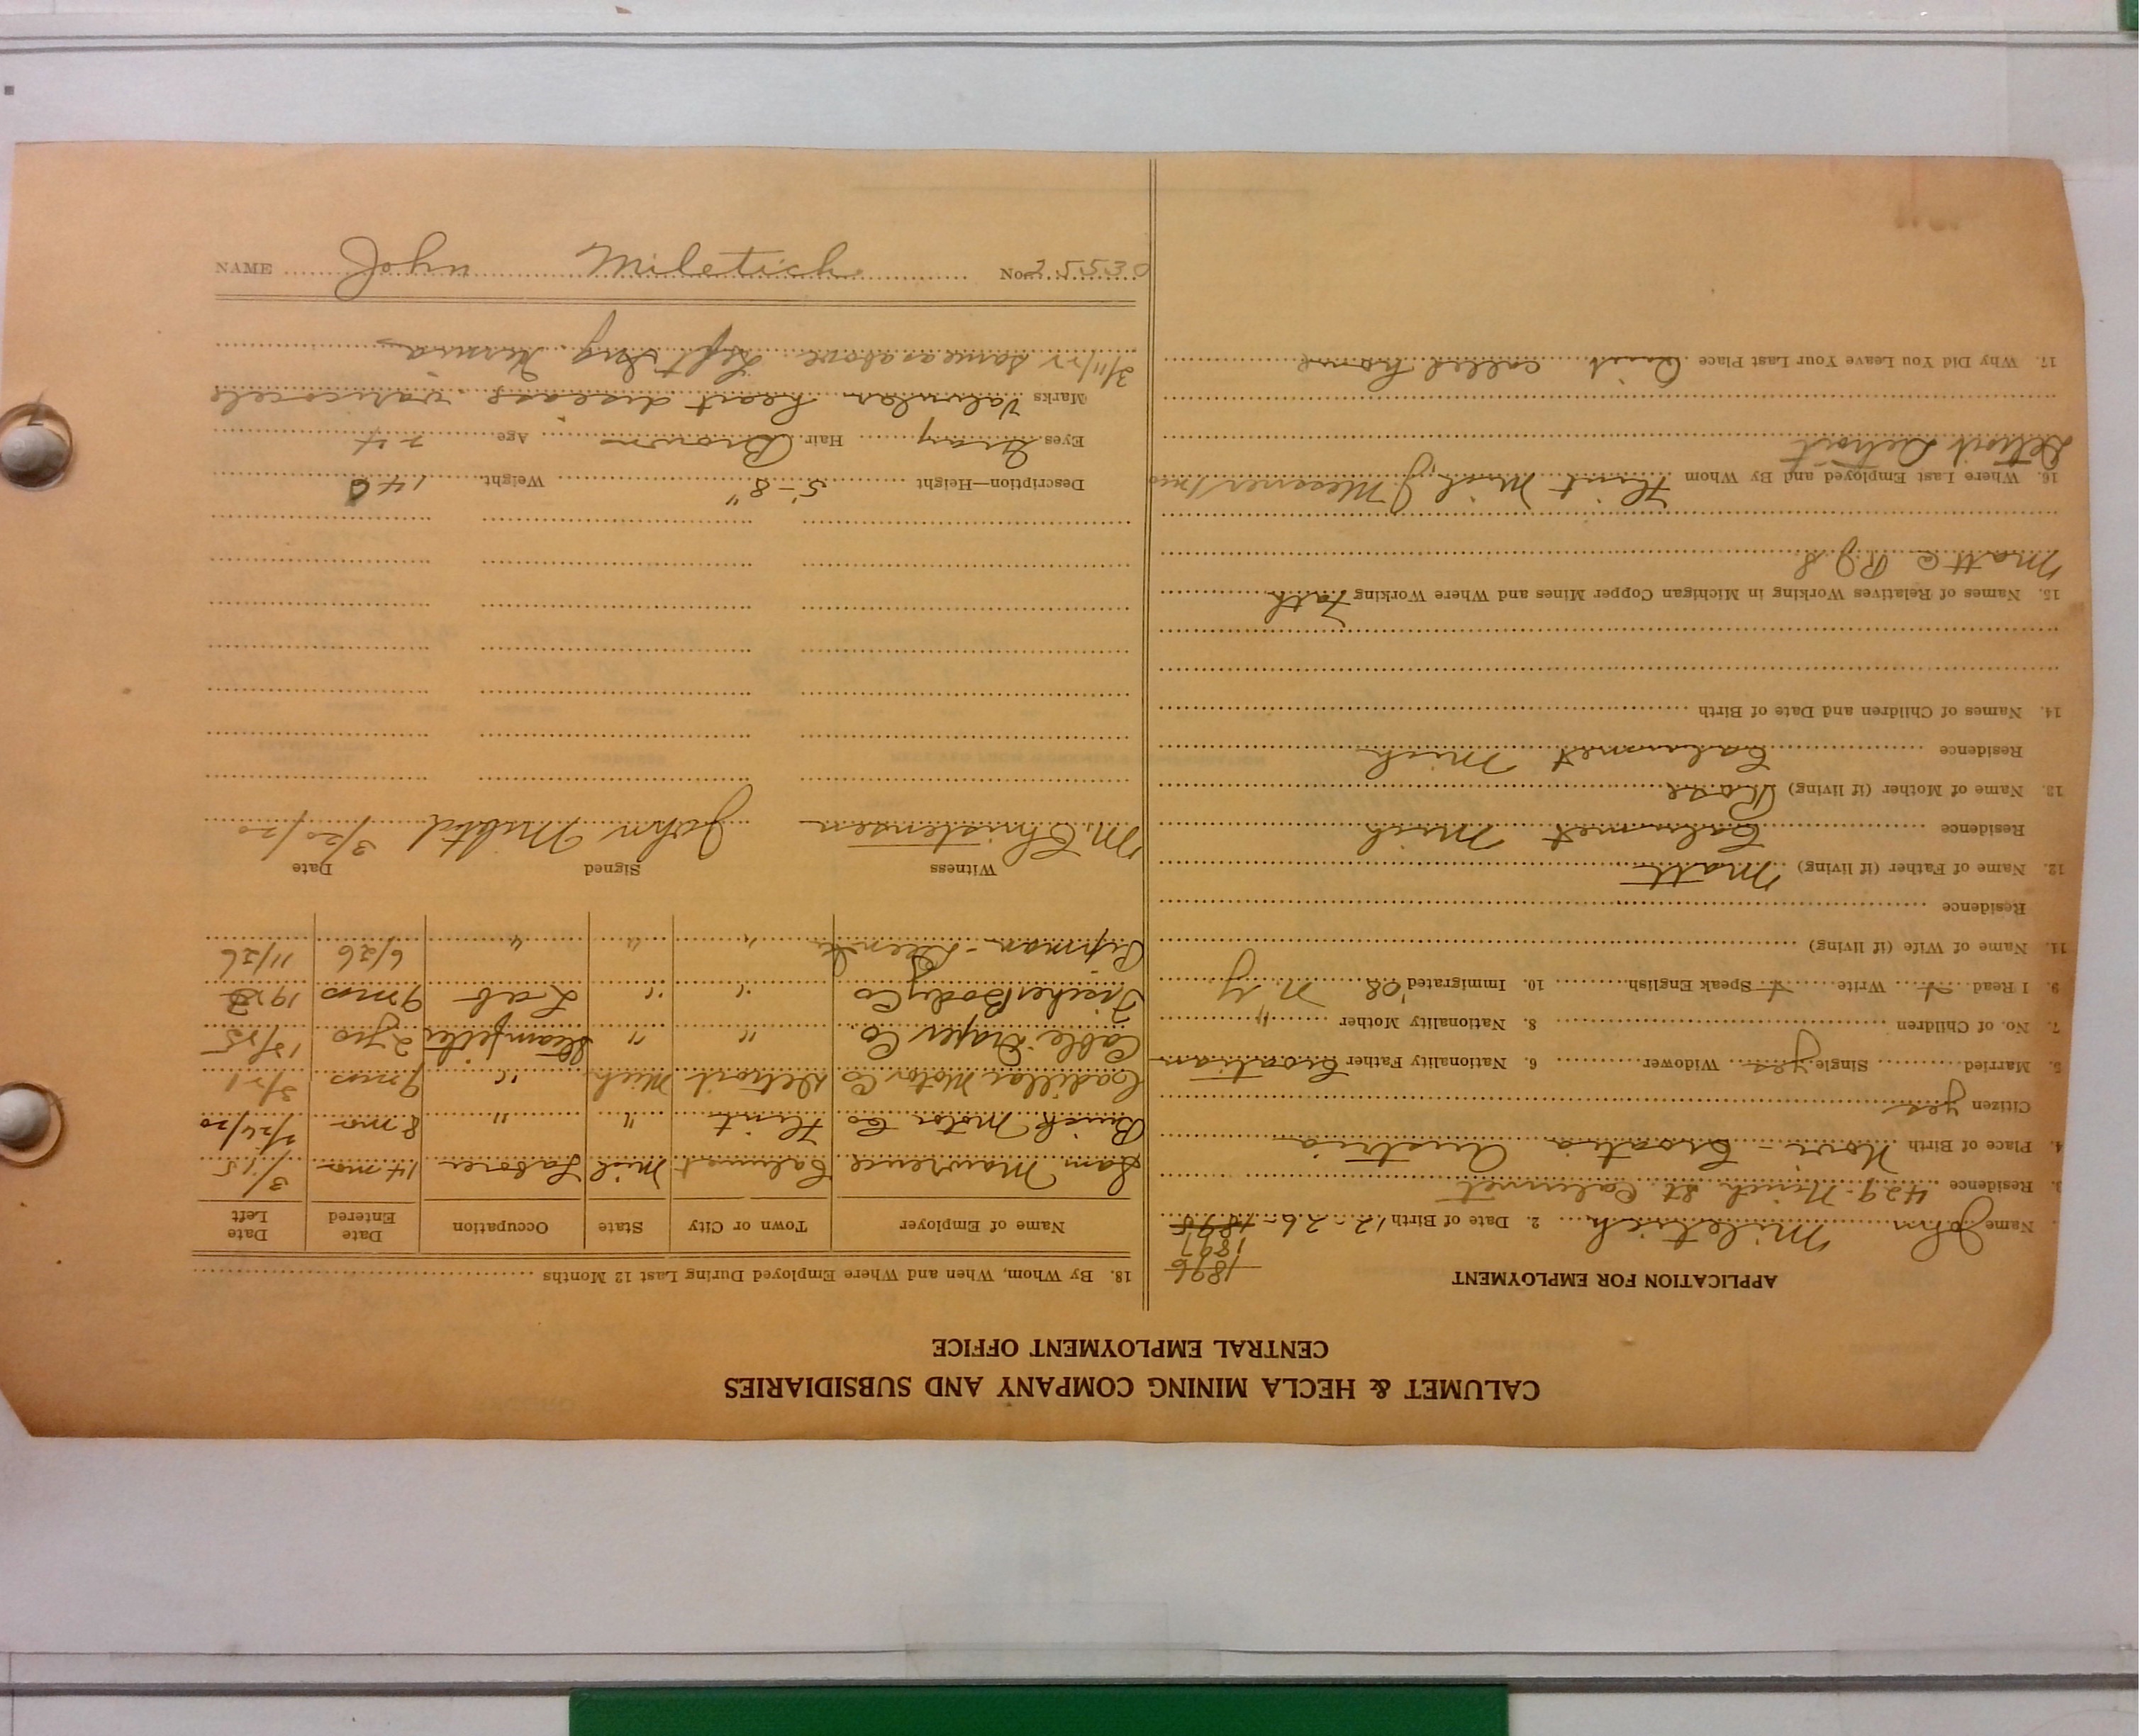 CALUMET & HECLA MINING COMPANY AND SUBSIDIARIES
CENTRAL EMPLOYMENT OFFICE
APPLICATION FOR EMPLOYMENT
1896
1897
Name John Miletich 2. Date of Birth 12-26-1895
3. Residence 429 Ninth St Calumet
4. Place of Birth Novi - Croatia Austria
Citizen yes
5. Married Single yes Widower 6. Nationality Father Croatian
7. No. of Children 8. Nationality Mother "
9. I Read + Write + Speak English 10. Immigrated '02 N.Y.
11. Name of Wife (if living)
Residence
12. Name of Father (if living) Matt
Residence Calumet Mich
13. Name of Mother (if living) Rose
Residence Calumet Mich
14. Names of Children and Date of Birth
15. Names of Relatives Working in Michigan Copper Mines and Where Working Fath
Matt C
16. Where Last Employed and By Whom Flint Mich J Messner
Detroit Detroit
17. Why Did You Leave Your Last Place Quit called home
18. By Whom, When and Where Employed During Last 12 Months
Name of Employer Town or City State Occupation Date Entered Date Left
Sam Mawrence Calumet Mich Laborer 14 mo 3/15
Buick Motor Co Flint " " 8 mo 2/24/20
Cadillac Motor Co Detroit Mich " 9 mos 3/21
Cable Draper Co. " " Steamfitter 2 yrs 12/25
Fischer Body Co " " Lab 9 mos
" " " 6/26 11/26
Witness Signed Date
M. Christensen John Miletich 3/20/20
Description—Height 5'-8" Weight 140
Eyes Gray Hair Brown Age 24
Marks Valvular heart disease. varicocele
3/11/27 same as above. Left Ing. Hernia
NAME John Miletich No. 25530